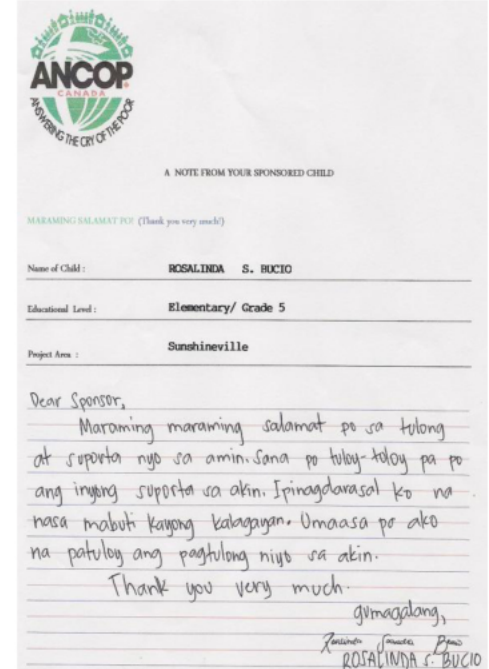 ANCOP
CANADA
ANSWERING THE CRY OF THE POOR
A NOTE FROM YOUR SPONSORED CHILD
MARAMING SALAMAT PO! (Thank you very much!)
Name of Child : ROSALINDA S. BUCIO
Educational Level : Elementary/ Grade 5
Project Area : Sunshineville
Dear Sponsor,
Maraming maraming salamat po sa tulong
at suporta nyo sa amin. Sana po tuloy-toloy pa po
ang inyong suporta sa akin. Ipinagdarasal ko na
nasa mabuti kayong kalagayan. Umaasa po ako
na patuloy ang pagtulong niyo sa akin.
Thank you very much.
gumagalang,
ROSALINDA S. BUCIO